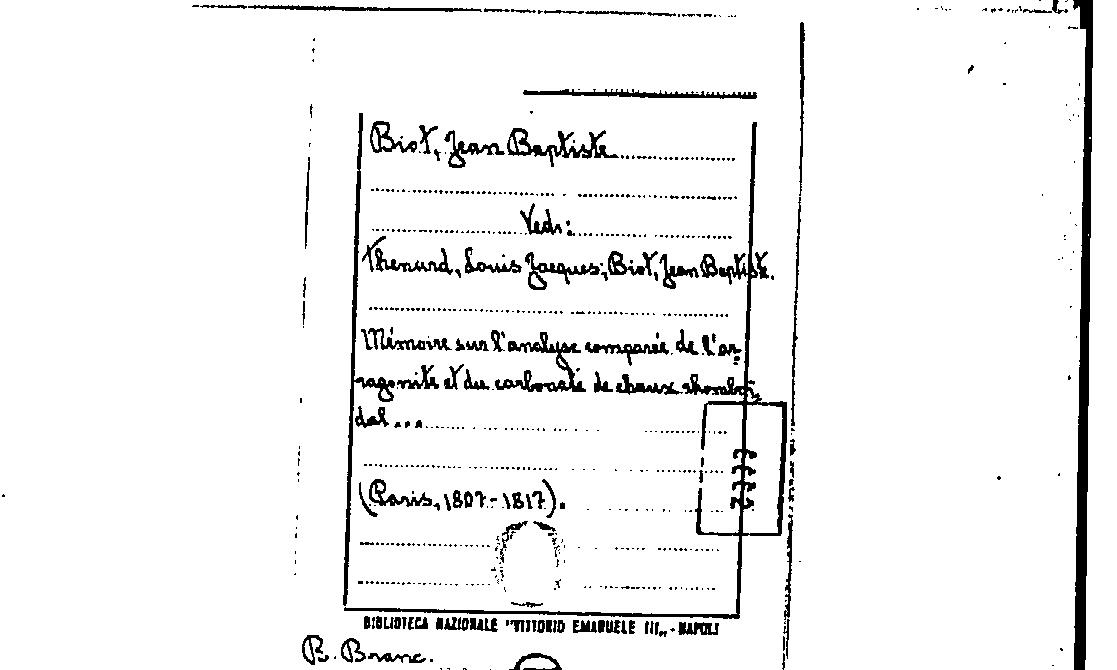 Biot, Jean Baptiste
Vedi:
Thenard, Louis Jacques; Biot, Jean Baptiste.
Mémoire sur l'analyse comparée de l'ar-
ragonite et du carbonate de chaux rhomboï-
dal...
(Paris, 1807-1817).
BIBLIOTECA NAZIONALE "VITTORIO EMANUELE III„ - NAPOLI
B. Branc.